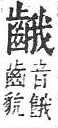 音餓
齒貌